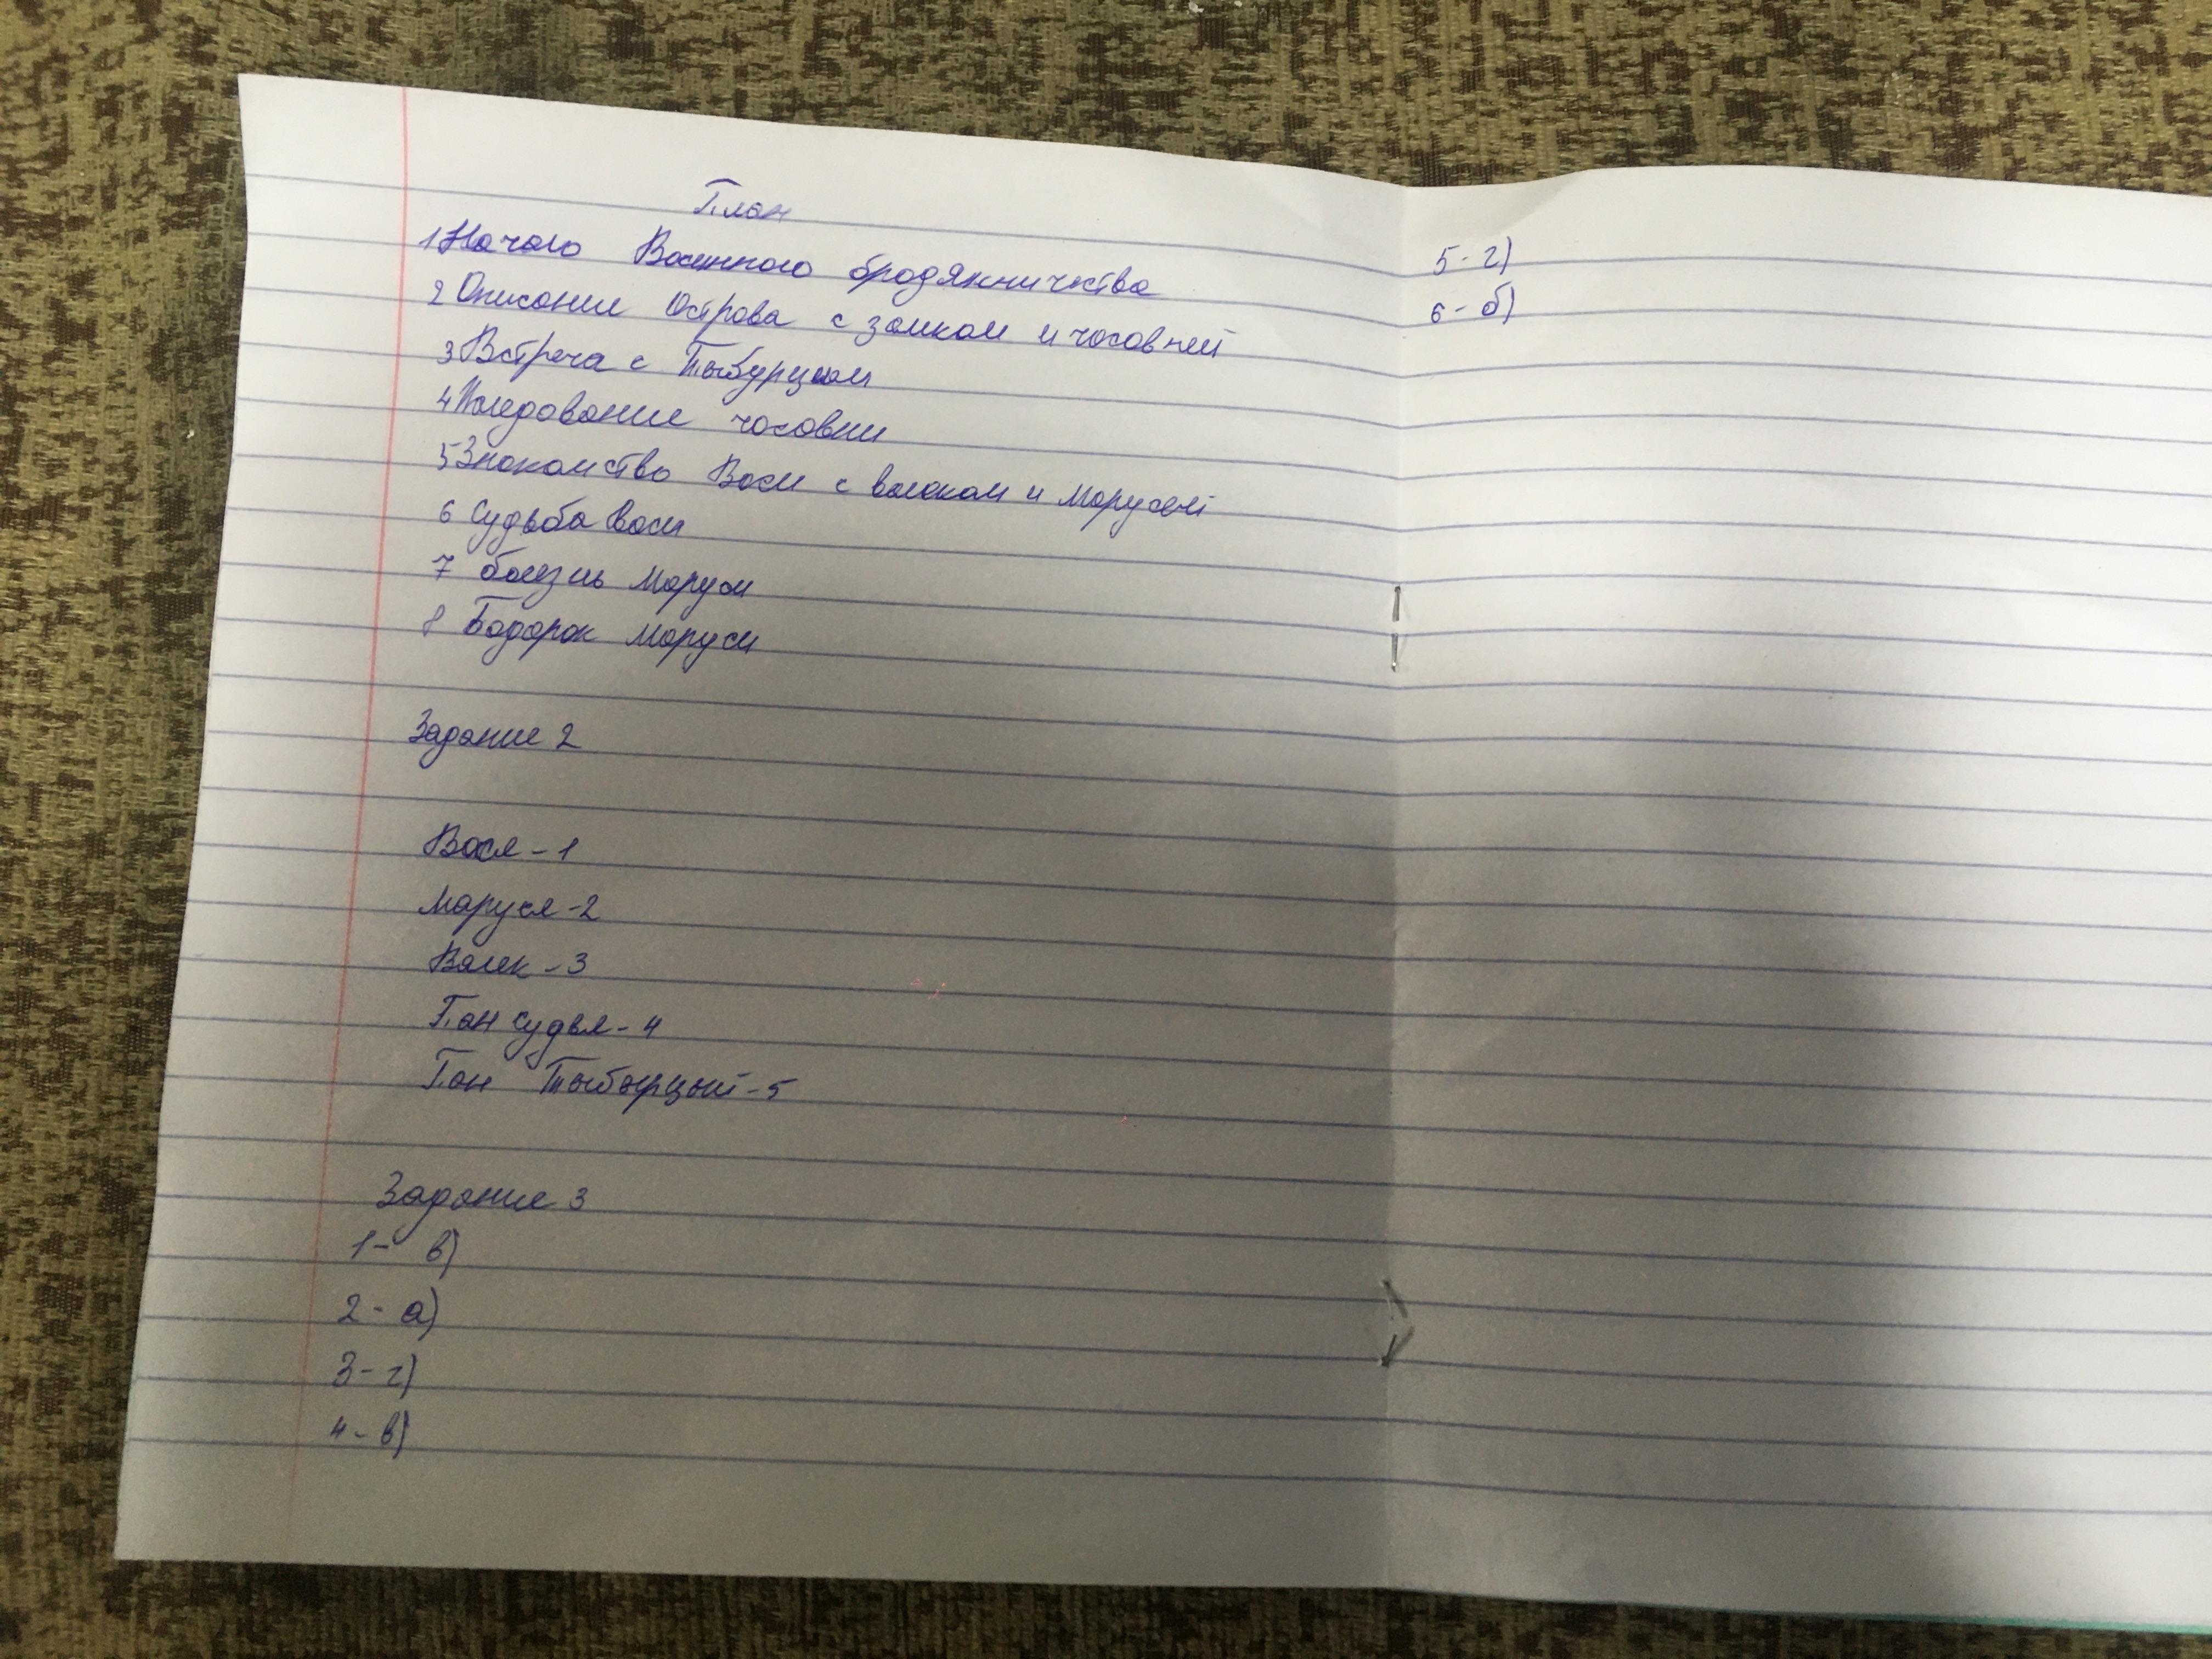 План
1 Начало Васиного бродяжничества
2 Описание Острова с замком и часовней
3 Встреча с Тыбурцием
4 Иследование часовни
5 Знакомство Васи с валеком и Марусей
6 Судьба Васи
7 болезнь Маруси
8 Подарок Маруси
Задание 2
Вася - 1
Маруся - 2
Валек - 3
Пан судья - 4
Пан Тыбурцый - 5
Задание 3
1 - в)
2 - а)
3 - г)
4 - в)
5 - г)
6 - б)